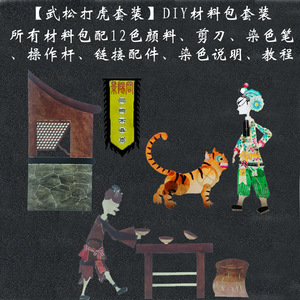 【武松打虎套装】DIY材料包套装
所有材料包配12色颜料、剪刀、染色笔
、操作杆、链接配件、染色说明、教程